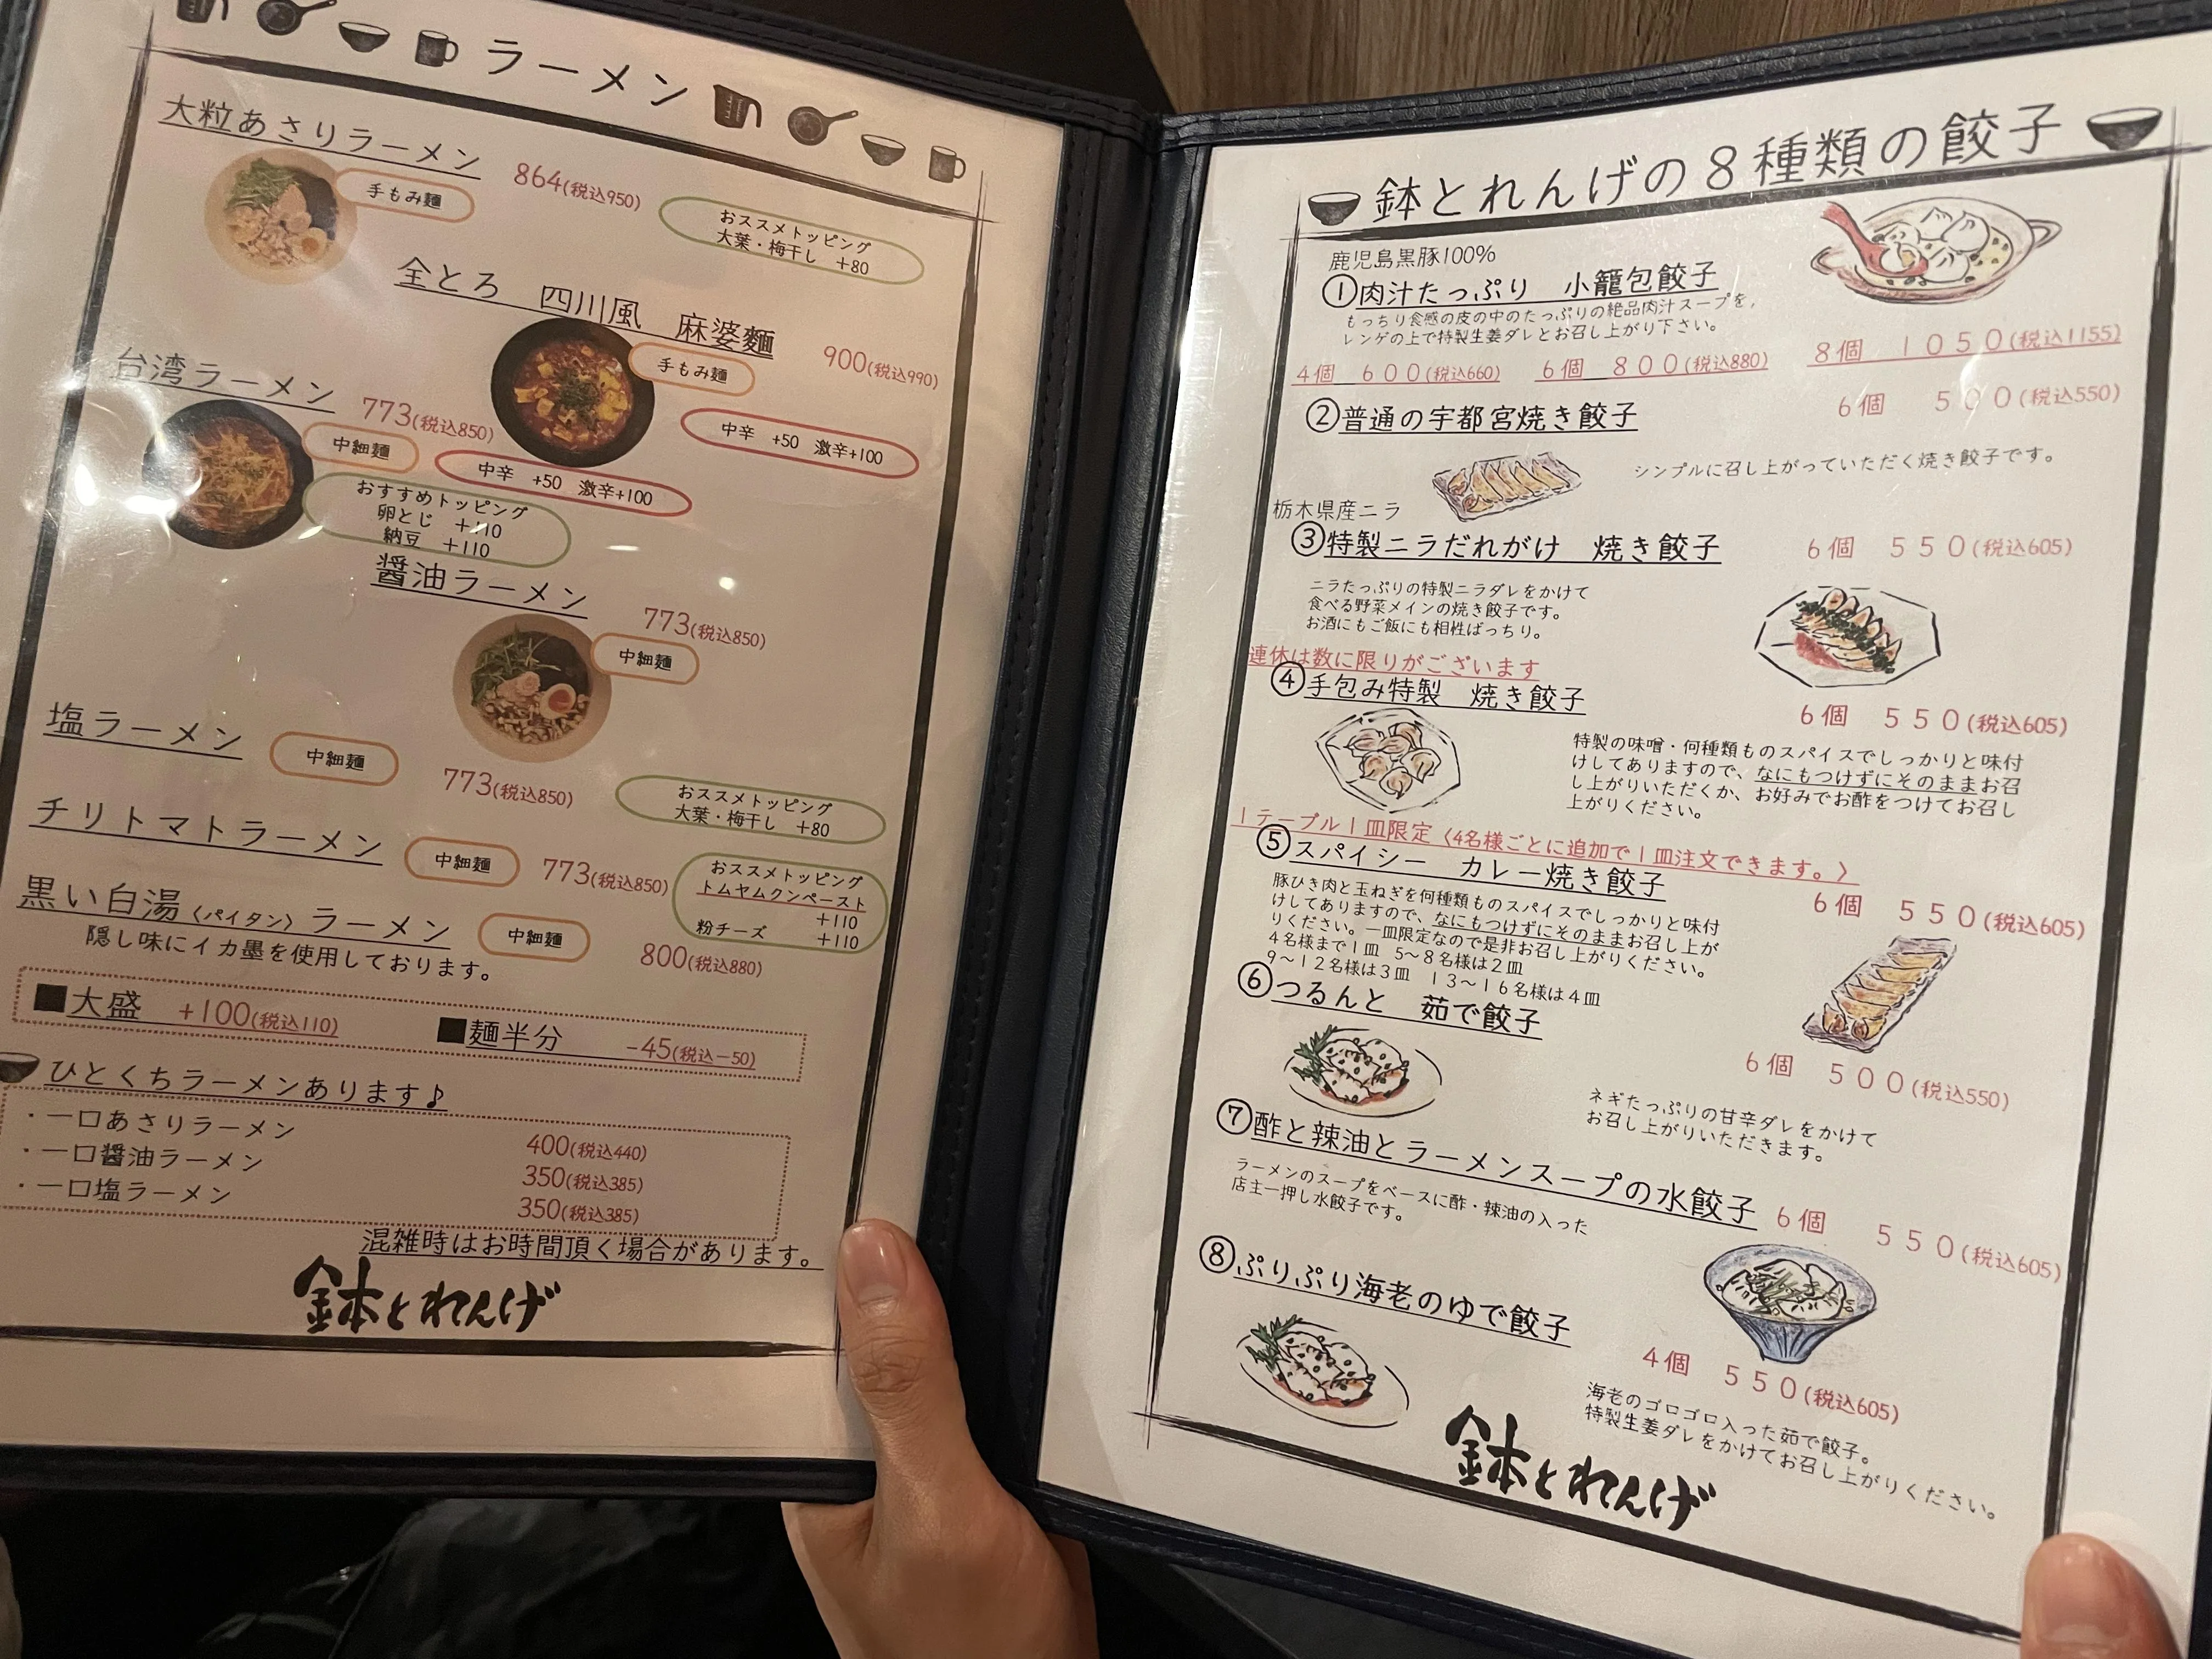 ラーメン
大粒あさりラーメン
864(税込950)
手もみ麺
おススメトッピング
大葉・梅干し +80
全とろ 四川風 麻婆麺
900(税込990)
手もみ麺
中辛 +50 激辛+100
台湾ラーメン
773(税込850)
中細麺
中辛 +50 激辛+100
おすすめトッピング
卵とじ +110
納豆 +110
醤油ラーメン
773(税込850)
中細麺
塩ラーメン
中細麺
773(税込850)
おススメトッピング
大葉・梅干し +80
チリトマトラーメン
中細麺
773(税込850)
おススメトッピング
トムヤムクンペースト
+110
粉チーズ +110
黒い白湯〈パイタン〉ラーメン
中細麺
800(税込880)
隠し味にイカ墨を使用しております。
■大盛 +100(税込110)
■麺半分 -45(税込-50)
ひとくちラーメンあります♪
・一口あさりラーメン 400(税込440)
・一口醤油ラーメン 350(税込385)
・一口塩ラーメン 350(税込385)
混雑時はお時間頂く場合があります。
鉢とれんげ
鉢とれんげの8種類の餃子
鹿児島黒豚100%
①肉汁たっぷり 小籠包餃子
もっちり食感の皮の中のたっぷりの絶品肉汁スープを,
レンゲの上で特製生姜ダレとお召し上がり下さい。
4個 600(税込660) 6個 800(税込880) 8個 1050(税込1155)
②普通の宇都宮焼き餃子
6個 500(税込550)
シンプルに召し上がっていただく焼き餃子です。
栃木県産ニラ
③特製ニラだれがけ 焼き餃子
6個 550(税込605)
ニラたっぷりの特製ニラダレをかけて
食べる野菜メインの焼き餃子です。
お酒にもご飯にも相性ばっちり。
連休は数に限りがございます
④手包み特製 焼き餃子
6個 550(税込605)
特製の味噌・何種類ものスパイスでしっかりと味付
けしてありますので、なにもつけずにそのままお召
し上がりいただくか、お好みでお酢をつけてお召し
上がりください。
1テーブル1皿限定〈4名様ごとに追加で1皿注文できます。〉
⑤スパイシー カレー焼き餃子
6個 550(税込605)
豚ひき肉と玉ねぎを何種類ものスパイスでしっかりと味付
けしてありますので、なにもつけずにそのままお召し上が
りください。一皿限定なので是非お召し上がりください。
4名様まで1皿 5~8名様は2皿
9~12名様は3皿 13~16名様は4皿
⑥つるんと 茹で餃子
6個 500(税込550)
ネギたっぷりの甘辛ダレをかけて
お召し上がりいただきます。
⑦酢と辣油とラーメンスープの水餃子
6個 550(税込605)
ラーメンのスープをベースに酢・辣油の入った
店主一押し水餃子です。
⑧ぷりぷり海老のゆで餃子
4個 550(税込605)
海老のゴロゴロ入った茹で餃子。
特製生姜ダレをかけてお召し上がりください。
鉢とれんげ